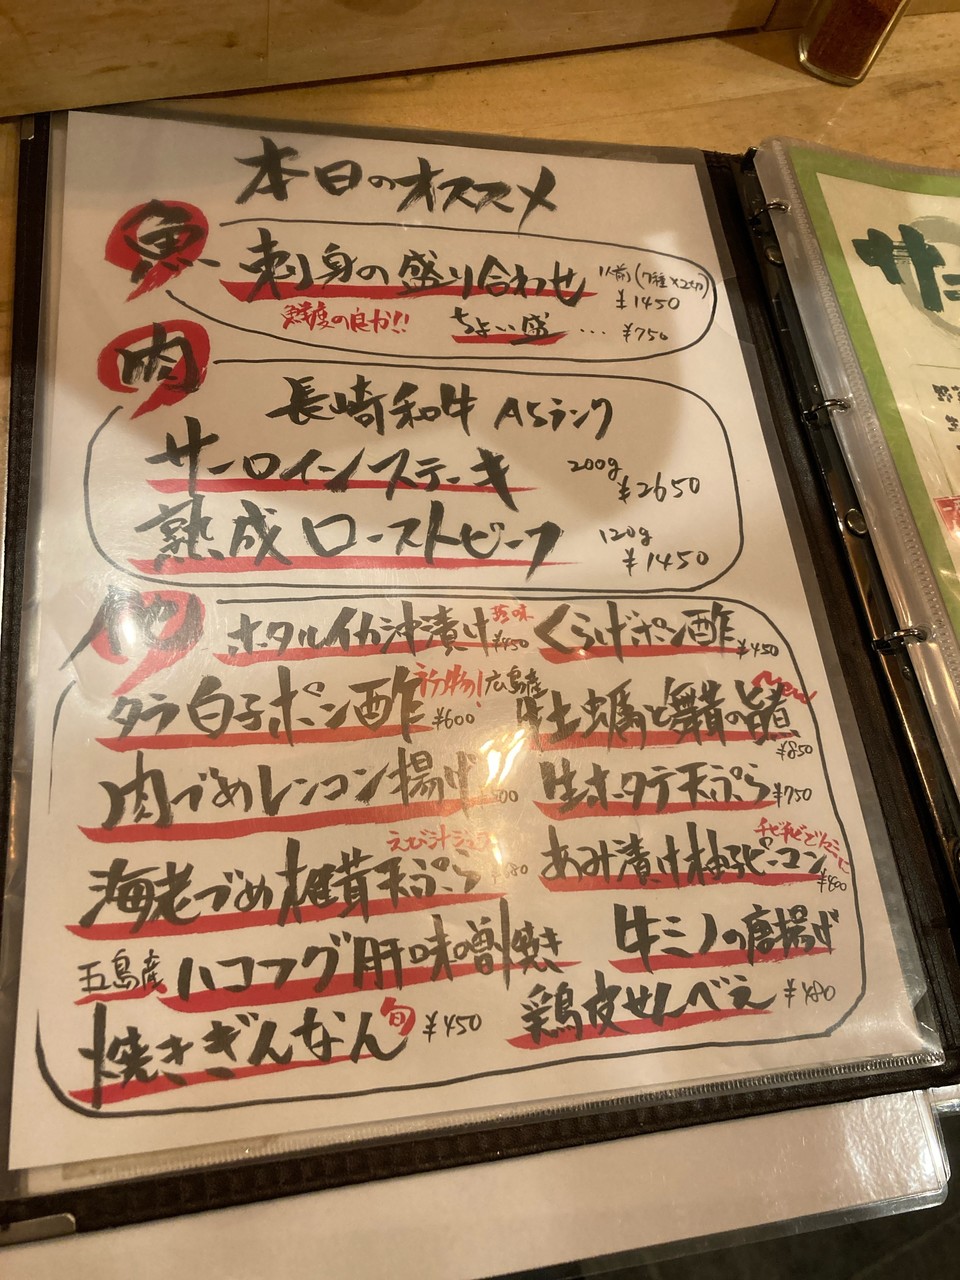 本日のオススメ
魚
刺身の盛り合わせ 1人前(7種×2切)
¥1450
鮮度の良か!! ちょい盛 … ¥750
肉
長崎和牛 A5ランク
サーロインステーキ 200g ¥2650
熟成ローストビーフ 120g ¥1450
他
ホタルイカ沖漬け 珍味 ¥450 くらげポン酢 ¥450
タラ白子ポン酢 初物! ¥600 広島産 牡蠣と舞茸の旨煮 New ¥850
肉づめレンコン揚げ 生ホタテ天ぷら ¥750
海老づめ椎茸天ぷら えび汁ジュワ あみ漬け柚子ピーコン ¥400
五島産 ハコフグ肝味噌焼き 牛ミノの唐揚げ
焼きぎんなん 旬 ¥450 鶏皮せんべえ ¥480